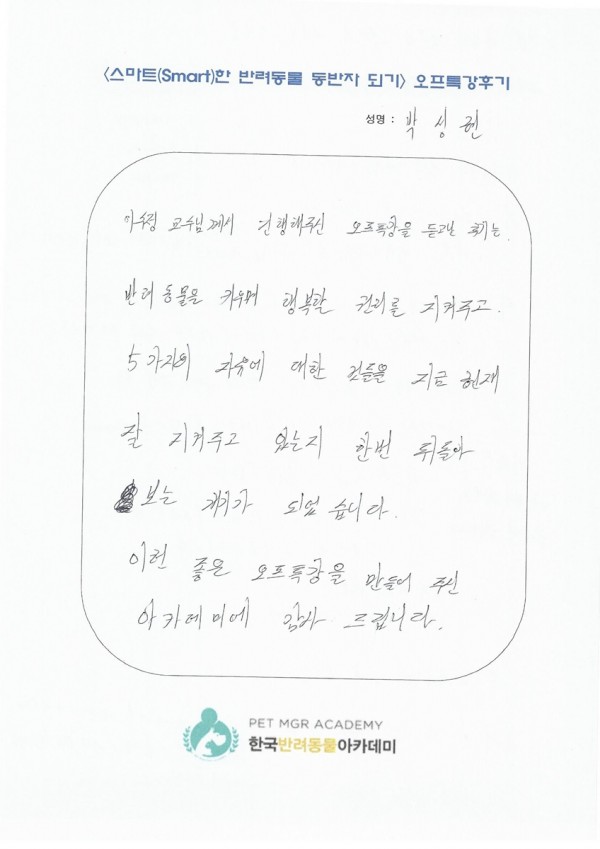 <스마트(Smart)한 반려동물 동반자 되기> 오프특강후기
성명 : 박 성 현
교수님께서 진행해주신 오프특강을 듣고난 후기는
반려동물을 키우며 행복할 권리를 지켜주고.
5가지의 자유에 대한 것들을 지금 현재
잘 지켜주고 있는지 한번 뒤돌아
보는 계기가 되었습니다.
이런 좋은 오프특강을 만들어 주신
아카데미에 감사 드립니다.
PET MGR ACADEMY
한국반려동물아카데미